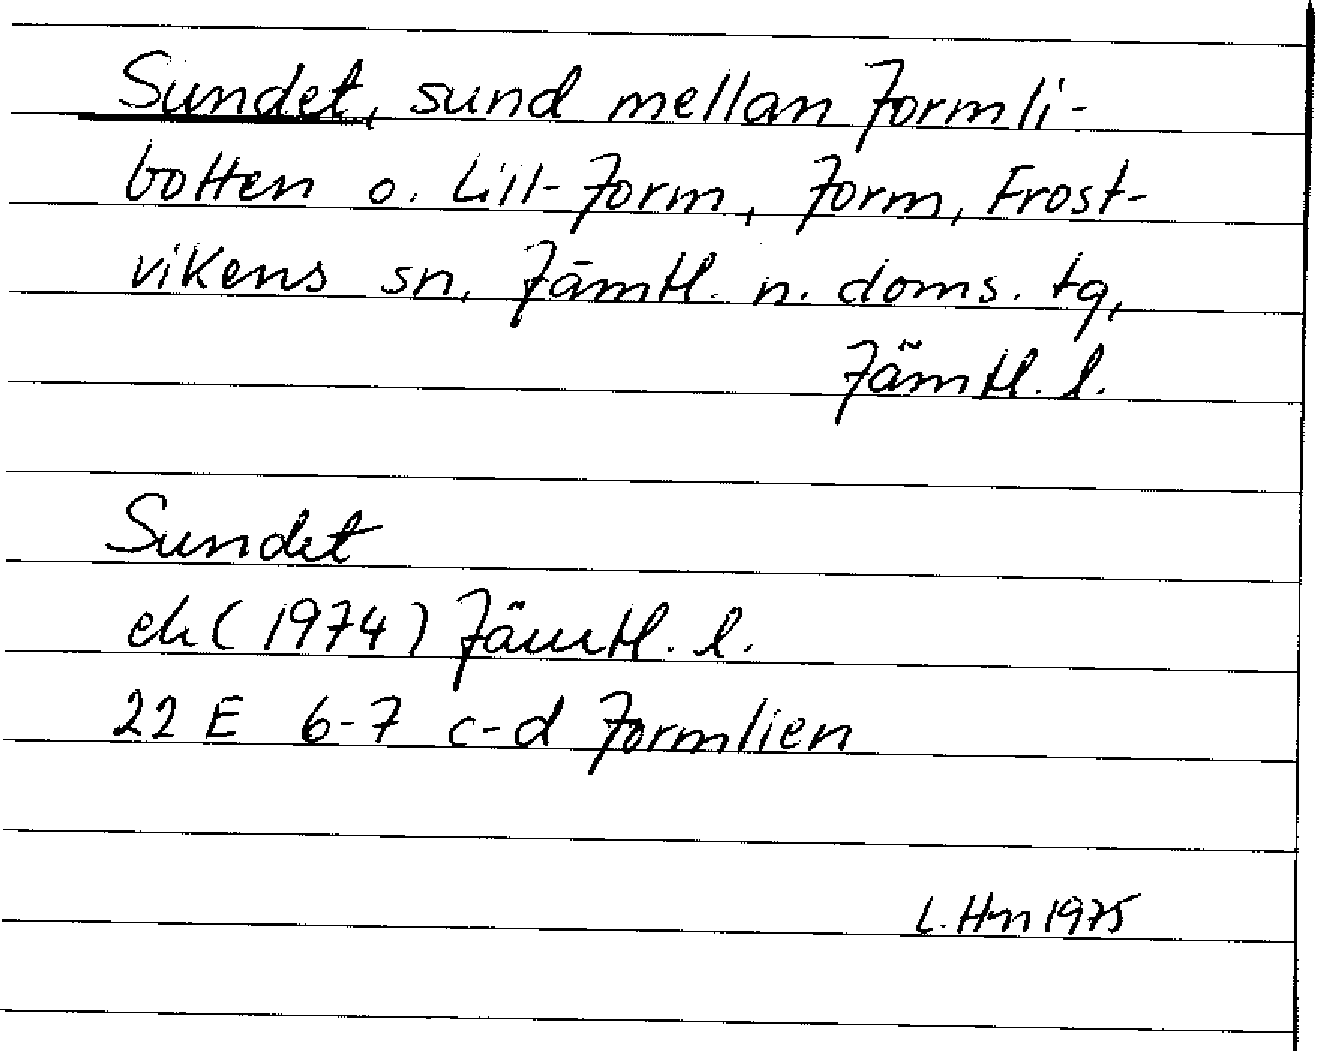 Sundet, sund mellan Jormli-
botten o. Lill-Jorm, Jorm, Frost-
vikens sn, Jämtl. n. doms. tg,
Jämtl. l.
Sundet
ek (1974) Jämtl. l.
22 E 6-7 c-d Jormlien
L. Hn 1975